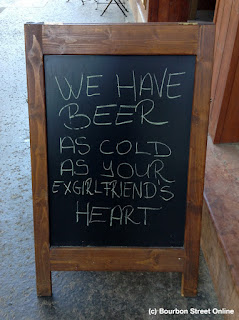 WE HAVE
BEER
AS COLD
AS YOUR
EXGIRLFRIEND'S
HEART
(c) Bourbon Street Online